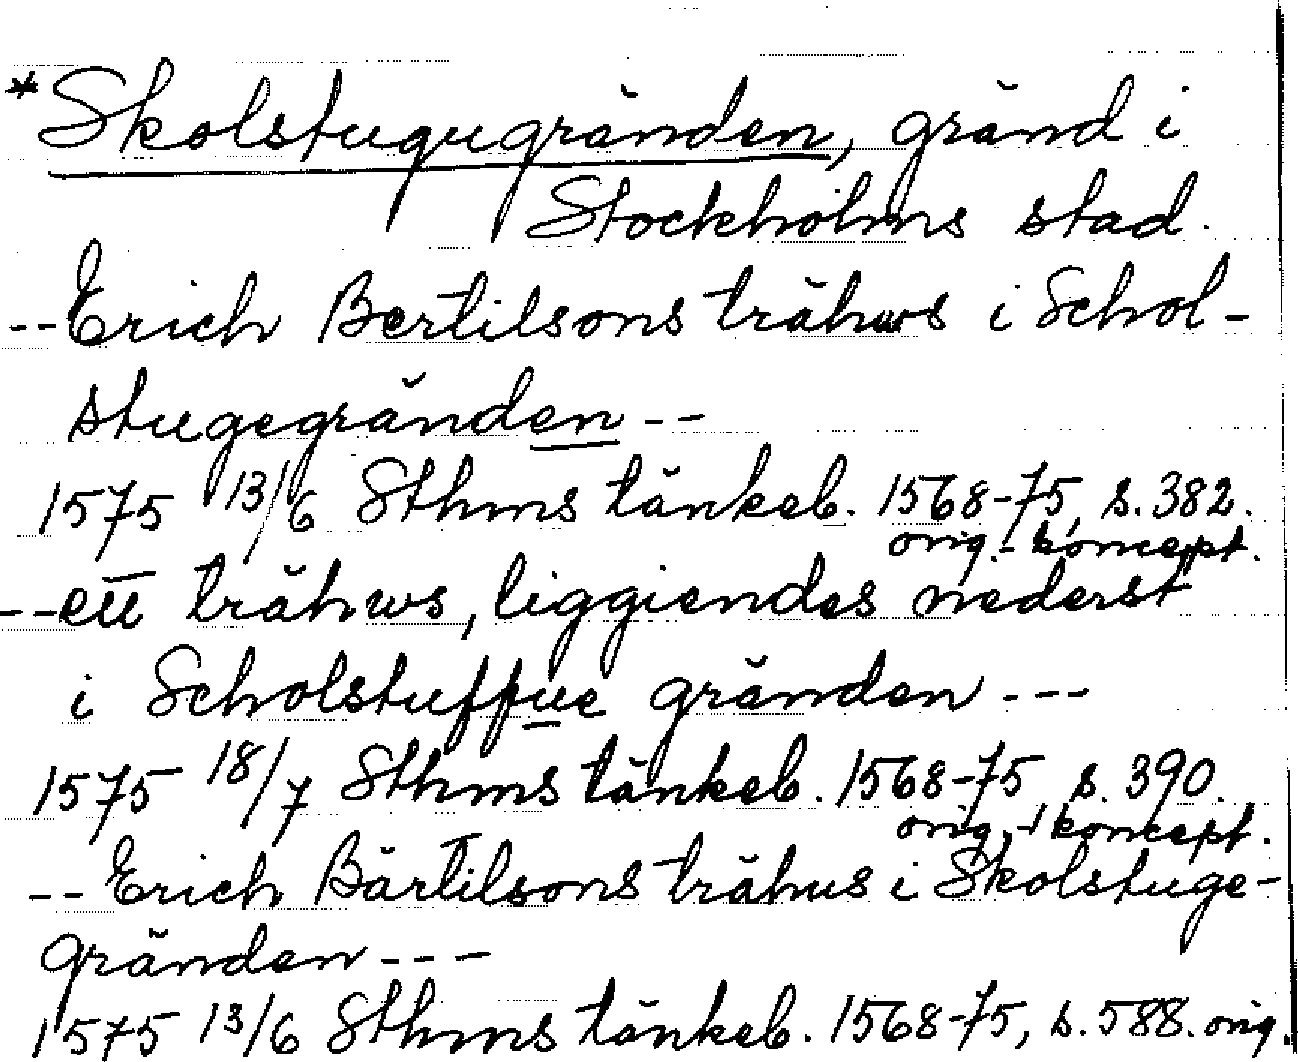 *Skolstugugränden, gränd i
Stockholms stad.
--Erich Bertilsons trähws i Schol-
stugegränden--
1575 13/6 Sthms tänkeb. 1568-75, s. 382.
orig.-koncept.
--ett trähws, liggiendes nederst
i Scholstuffue gränden---
1575 18/7 Sthms tänkeb. 1568-75, s. 390.
orig.-koncept.
--Erich Bärtilsons trähus i Skolstuge-
gränden---
1575 13/6 Sthms tänkeb. 1568-75, s. 588. orig.